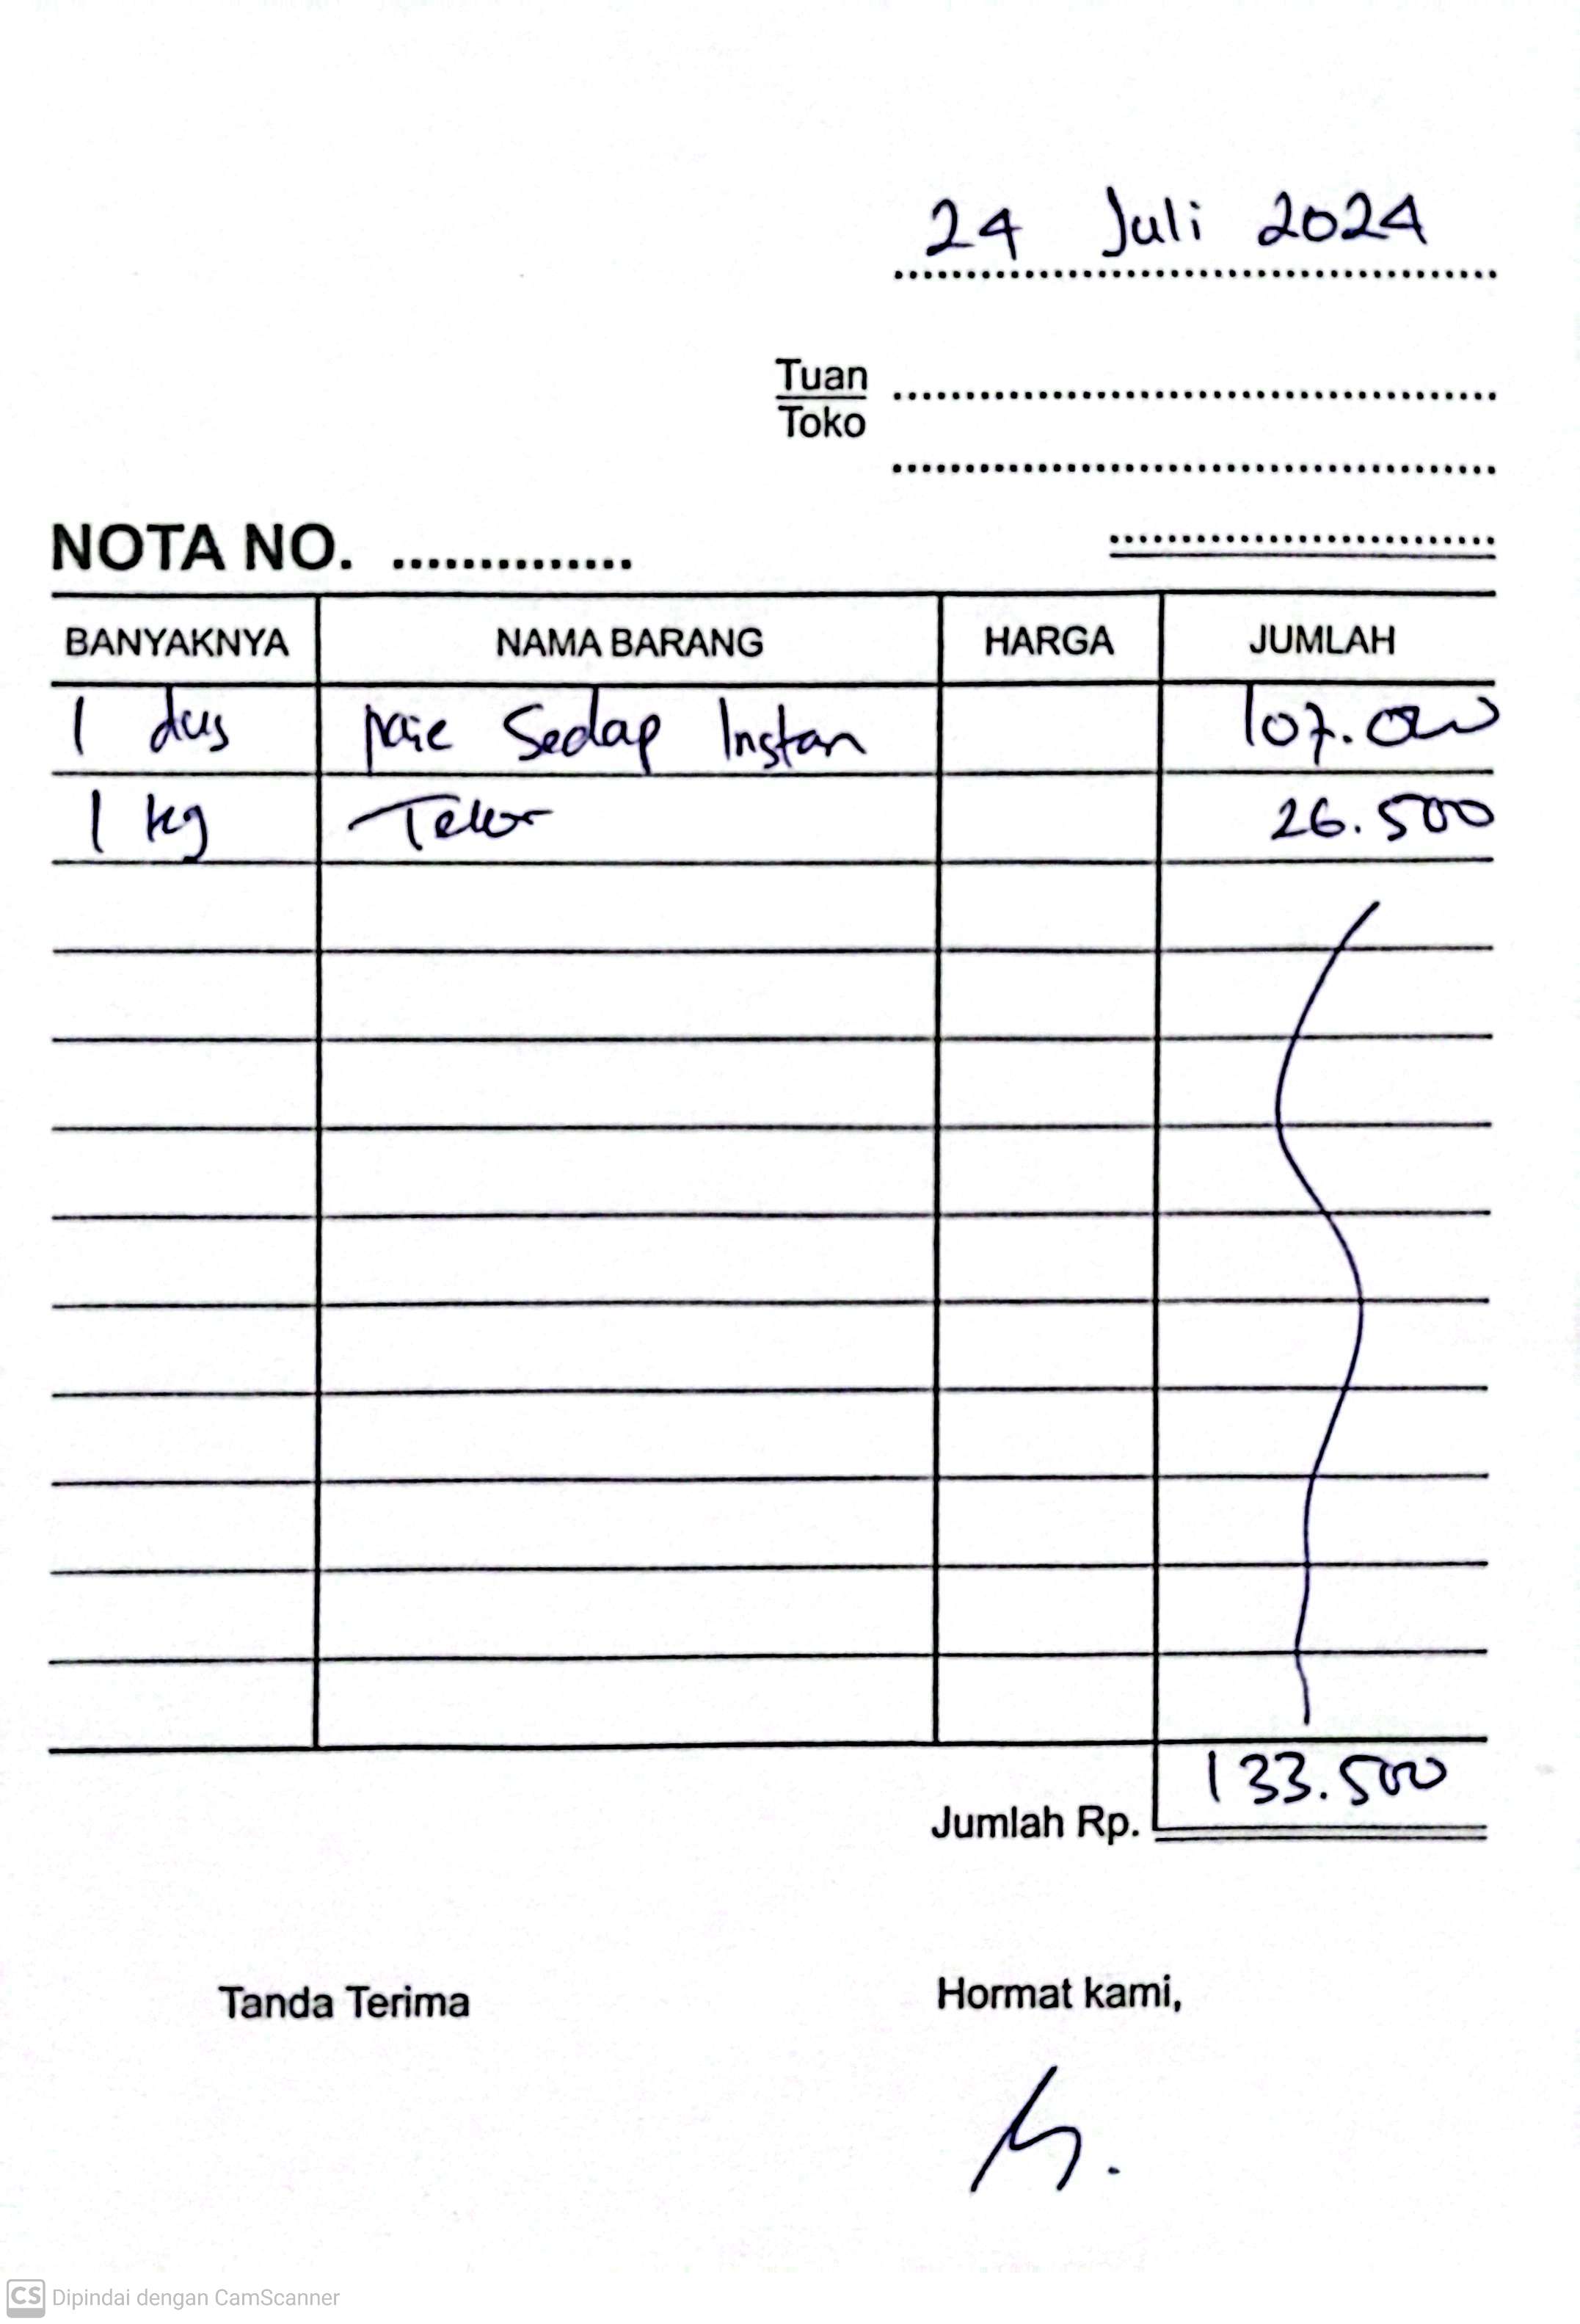 24 Juli 2024
Tuan
Toko
NOTA NO. ..............
BANYAKNYA NAMA BARANG HARGA JUMLAH
1 dus Mie Sedap Instan 107.000
1 kg Telor 26.500
133.500
Jumlah Rp.
Tanda Terima Hormat kami,
CS Dipindai dengan CamScanner